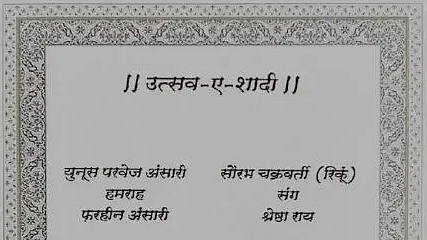 || उत्सव-ए-शादी ||
युनूस परवेज अंसारी
हमराह
फरहीन अंसारी
सौरभ चक्रवर्ती (रिंकू)
संग
श्रेष्ठा राय